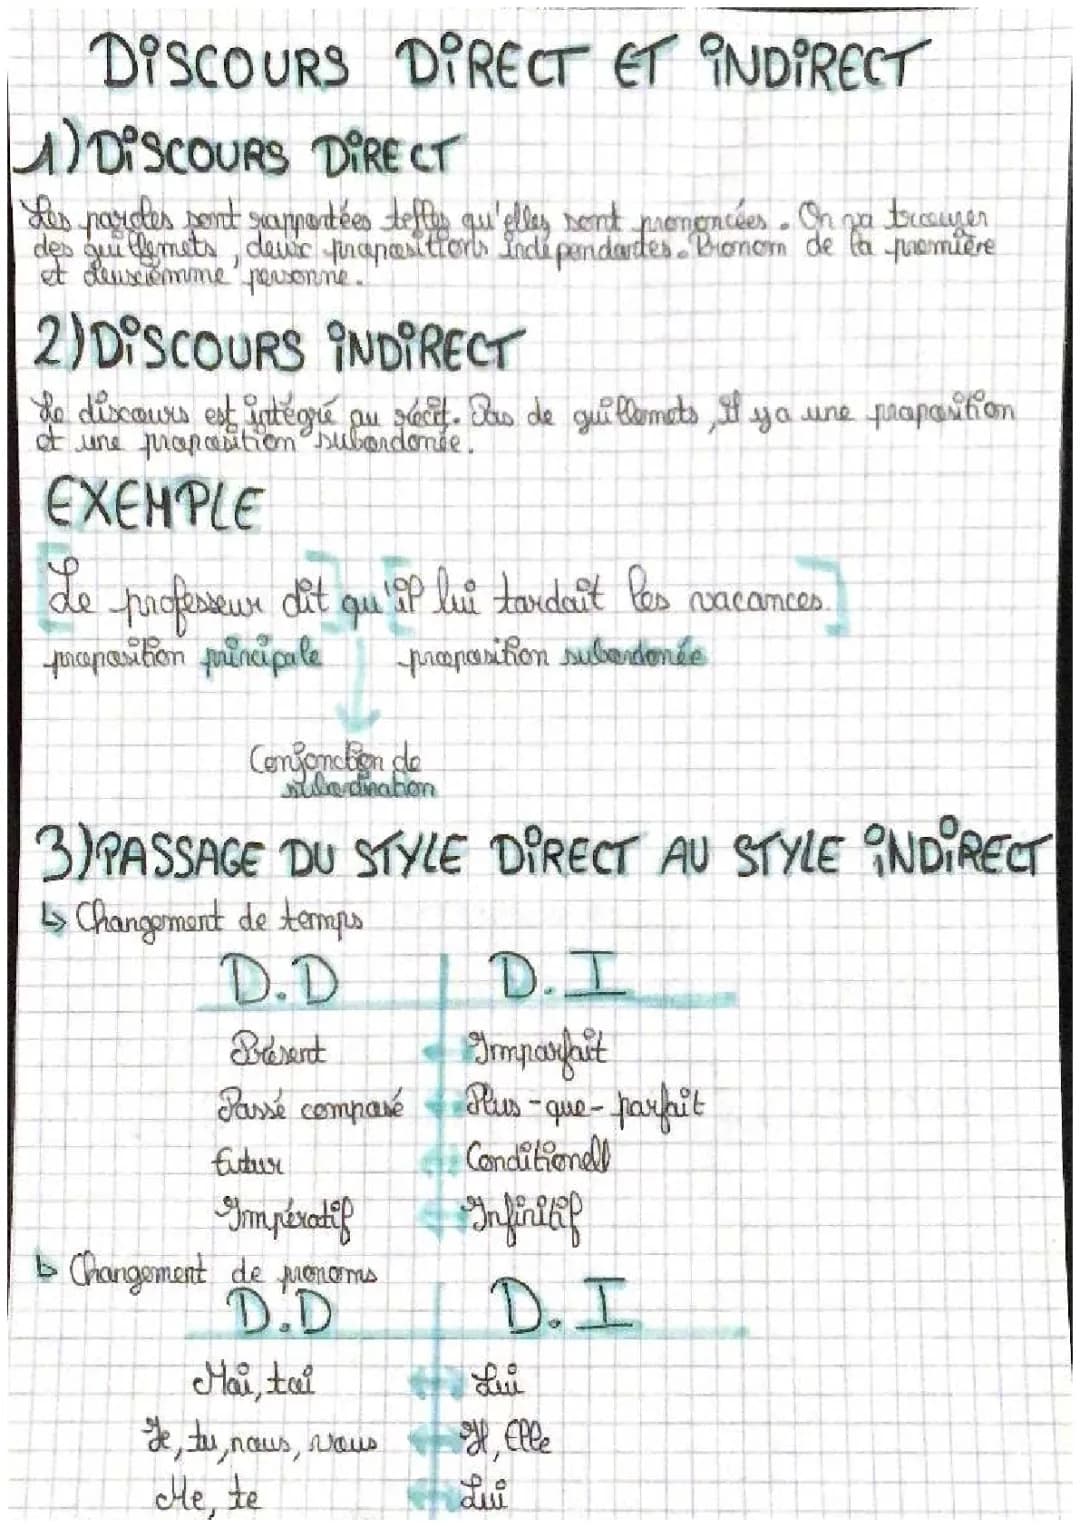 DISCOURS DIRECT ET INDIRECT
1) DISCOURS DIRECT
Les paroles sont rapportées telles qu'elles sont prononcées. On va trouver
des guillemets, deux propositions indépendantes. Pronom de la première
et deuxiémme personne.
2) DISCOURS INDIRECT
Le discours est intégré au récit. Pas de guillemets, il y a une proposition
et une proposition subordonée.
EXEMPLE
[Le professeur dit] qu'[il lui tardait les vacances.]
proposition principale proposition subordonée
Conjonction de
subordination
3) PASSAGE DU STYLE DIRECT AU STYLE INDIRECT
↳ Changement de temps
D.D D.I
Présent Imparfait
Passé composé Plus-que-parfait
futur Conditionell
Impératif Infinitif
↳ Changement de pronoms
D.D D.I
Moi, toi Lui
Je, tu, nous, vous Il, Elle
Me, te Lui